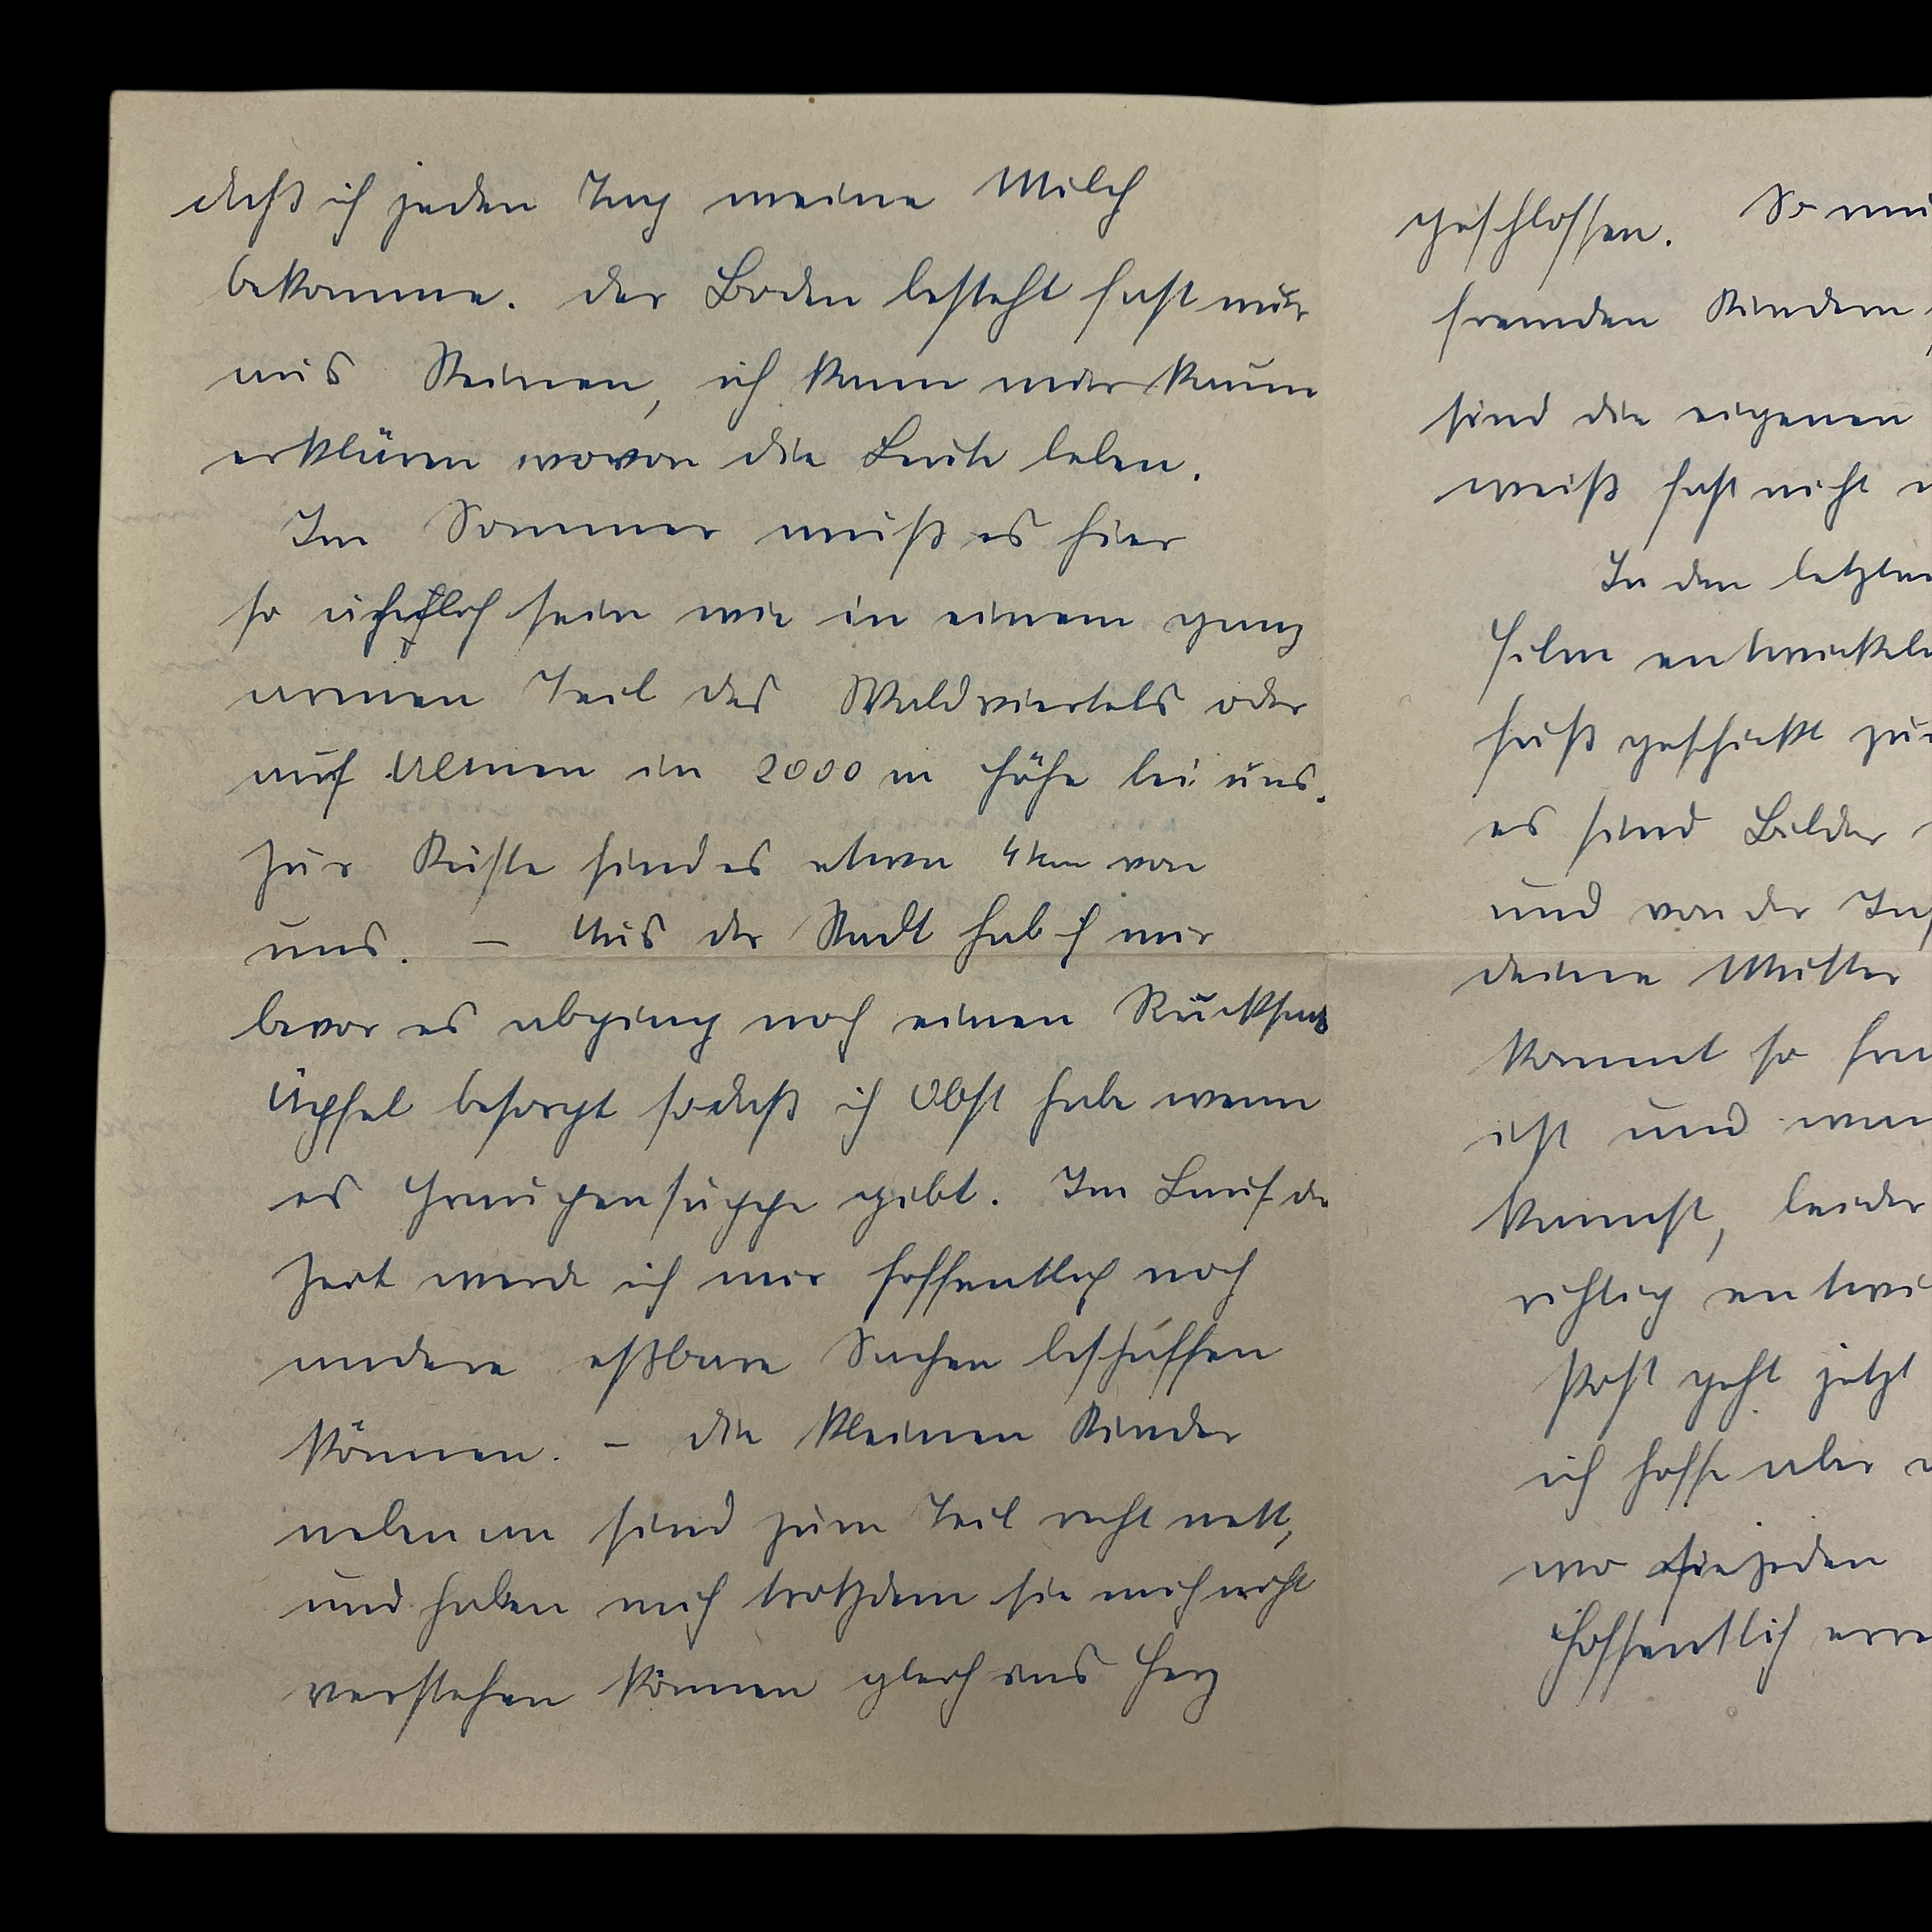 daß ich jeden Tag meine Milch
bekomme. Der Boden besteht fast nur
aus Steinen, ich kann mir kaum
erklären wovon die Leute leben.
Im Sommer muß es hier
so ähnlich sein wie in einem ganz
armen Teil des Waldviertels oder
auf Almen in 2000 m Höhe bei uns.
Zur Küste sind es etwa 4 km von
uns. – Aus der Stadt hab ich mir
bevor es abging noch einen Rucksack
Äpfel besorgt sodaß ich Obst habe wenn
es Graupensuppe gibt. Im Lauf der
Zeit werde ich mir hoffentlich noch
andere eßbare Sachen beschaffen
können. – Die kleinen Kinder
nebenan sind zum Teil recht nett,
und haben mich trotzdem sie mich nicht
verstehen können gleich ins Herz
geschlossen. So
fremden Kindern
sind die eigenen
weiß fast nicht
In den letzten
Film
hast geschickt
es sind Bilder
und von der
deine Mutter
kommt so
ist und
kannst, leider
richtig
Post geht jetzt
ich hoffe aber
wo sie jeden
Hoffentlich